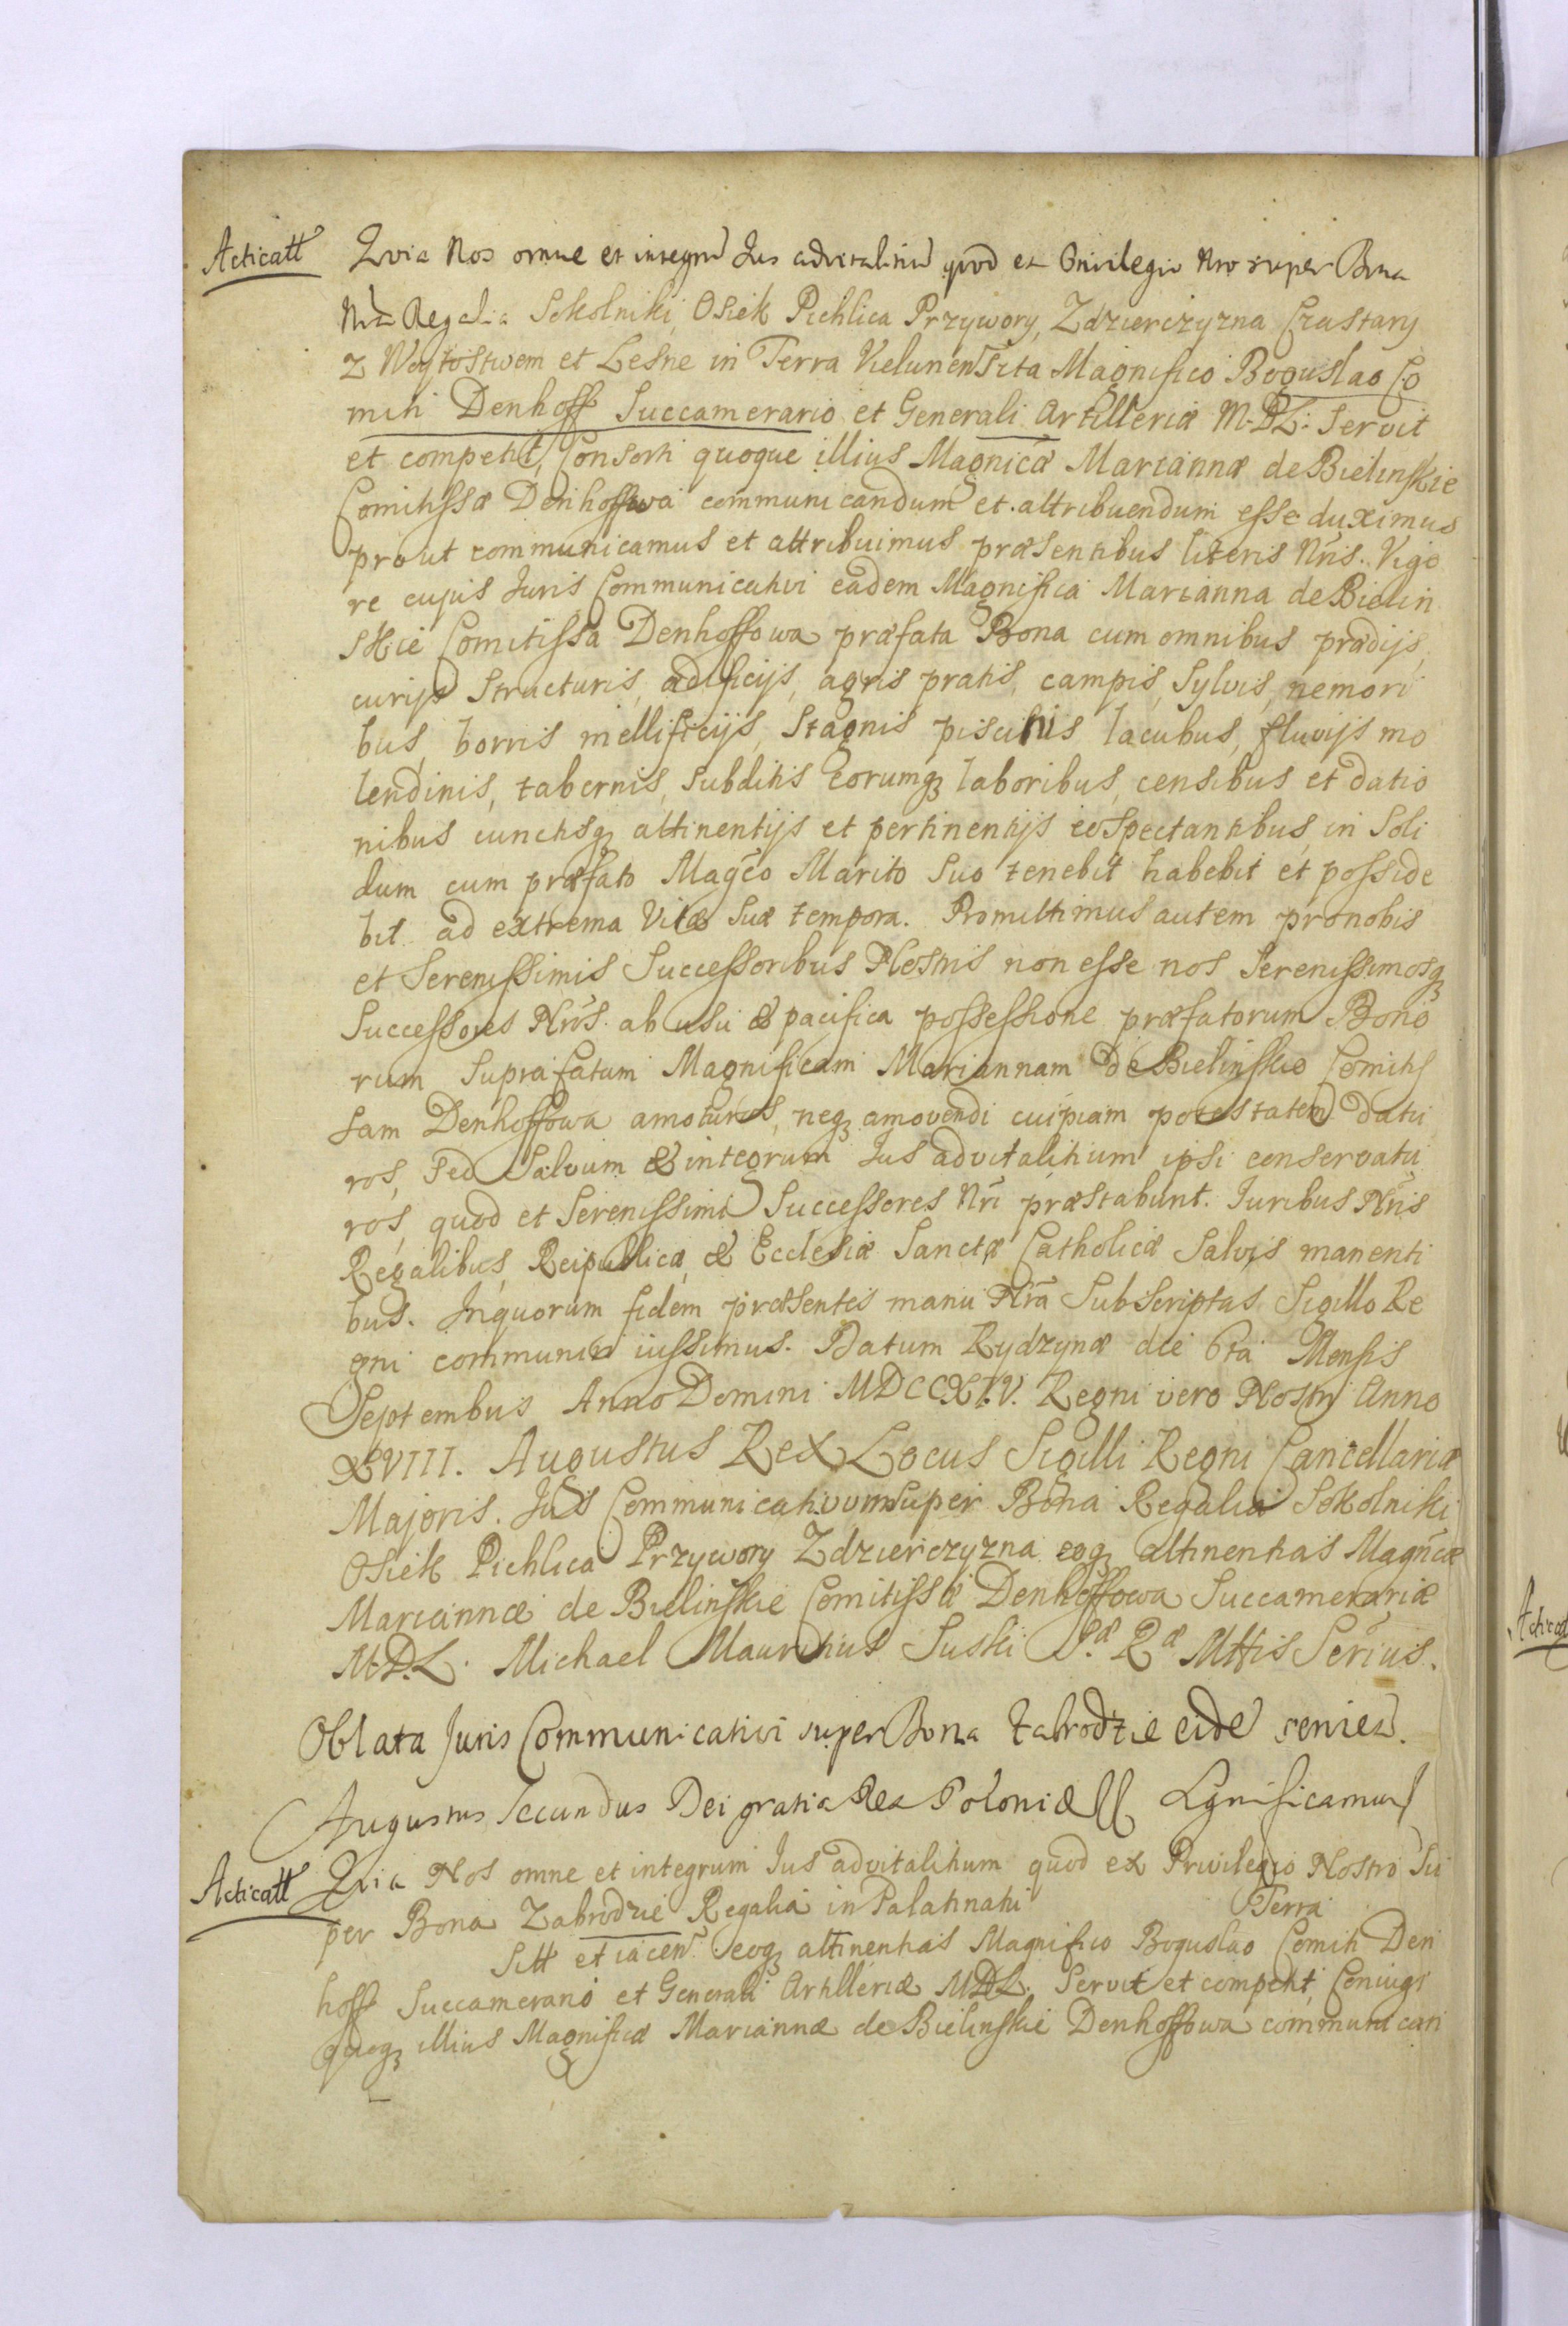 Acticatt
Qvia Nos omne et integrũ Jus advitalitiũ qvod ex Privilegio Nro super Bona
Nrã Regalia Sokolniki, Osiek Pichlica Przywory, Zdzierczyzna Czastary
z Woytostwem et Lesne in Terra Vielunen sita Magnifico Boguslao Co
miti Denhoff Succamerario et Generali Artilleriæ M.D.L: servit
et competit, Consorti quoque illius Magnicæ Mariannæ de Bielinskie
Comitissæ Denhoffowa communicandum et attribuendum esse duximus
prout communicamus et attribuimus præsentibus literis Nris. Vigo
re cujus Juris Communicativi eadem Magnifica Marianna de Bielin
skie Comitissa Denhoffowa præfata Bona cum omnibus prædijs,
curijs structuris, ædificijs, agris pratis, campis, sylvis, nemori
bus, borris mellificijs, stagnis piscinis lacubus, fluvijs mo
lendinis, tabernis, subditis eorumq; laboribus, censibus et datio
nibus cunctisq; attinentijs et pertinentijs eo spectantibus, in soli
dum cum præfato Magco Marito suo tenebit habebit et posside
bit ad extrema Vitæ suæ tempora. Promittimus autem pro nobis
et Serenissimis Successoribus Nostris non esse nos Serenissimosq;
Successores Nros. ab usu & pacifica possessione præfatorum Bono
rum suprafatam Magnificam Mariannam de Bielinskie Comitis
sam Denhoffowa amoturos, neq; amovendi cuipiam potestatem datu
ros, sed salvum & integrum Jus advitalitium ipsi conservatu
ros, quod et Serenissimi Successores Nri præstabunt. Juribus Nris
Regalibus, Reipublicæ, & Ecclesiæ Sanctæ Catholicæ salvis manenti
bus. In quorum fidem præsentes manu Nra Subscriptas Sigillo Re
gni communiri iussimus. Datum Rydzynæ die 6ta Mensis
Septembris Anno Domini MDCCXIV. Regni vero Nostri Anno
XVIII. Augustus Rex Locus Sigilli Regni Cancellariæ
Majoris. Jus Communicativum super Bona Regalia Sokolniki
Osiek Pichlica Przywory Zdzierczyzna eoq; attinentias Magncæ
Mariannæ de Bielinskie Comitissæ Denhoffowa Succamerariæ
M.D.L. Michael Mauritius Suski S.æ R.æ Mttis Serius.
Oblata Juris Communicativi super Bona Zabrodzie eidẽ serviẽ.
Augustus Secundus Dei gratia Rex Poloniæ Sgnificamus
Acticatt
Qvia Nos omne et integrum Jus advitalitium quod ex Privilegio Nostro Su
per Bona Zabrodzie Regalia in Palatinatu Terra
Sitt et iacen eoq; attinentias Magnifico Boguslao Comiti Den
hoff Succamerario et Generali Artilleriæ MDL. Servit et competit, Coniugi
quoq; illius Magnificæ Mariannæ de Bielinskie Denhoffowa communican